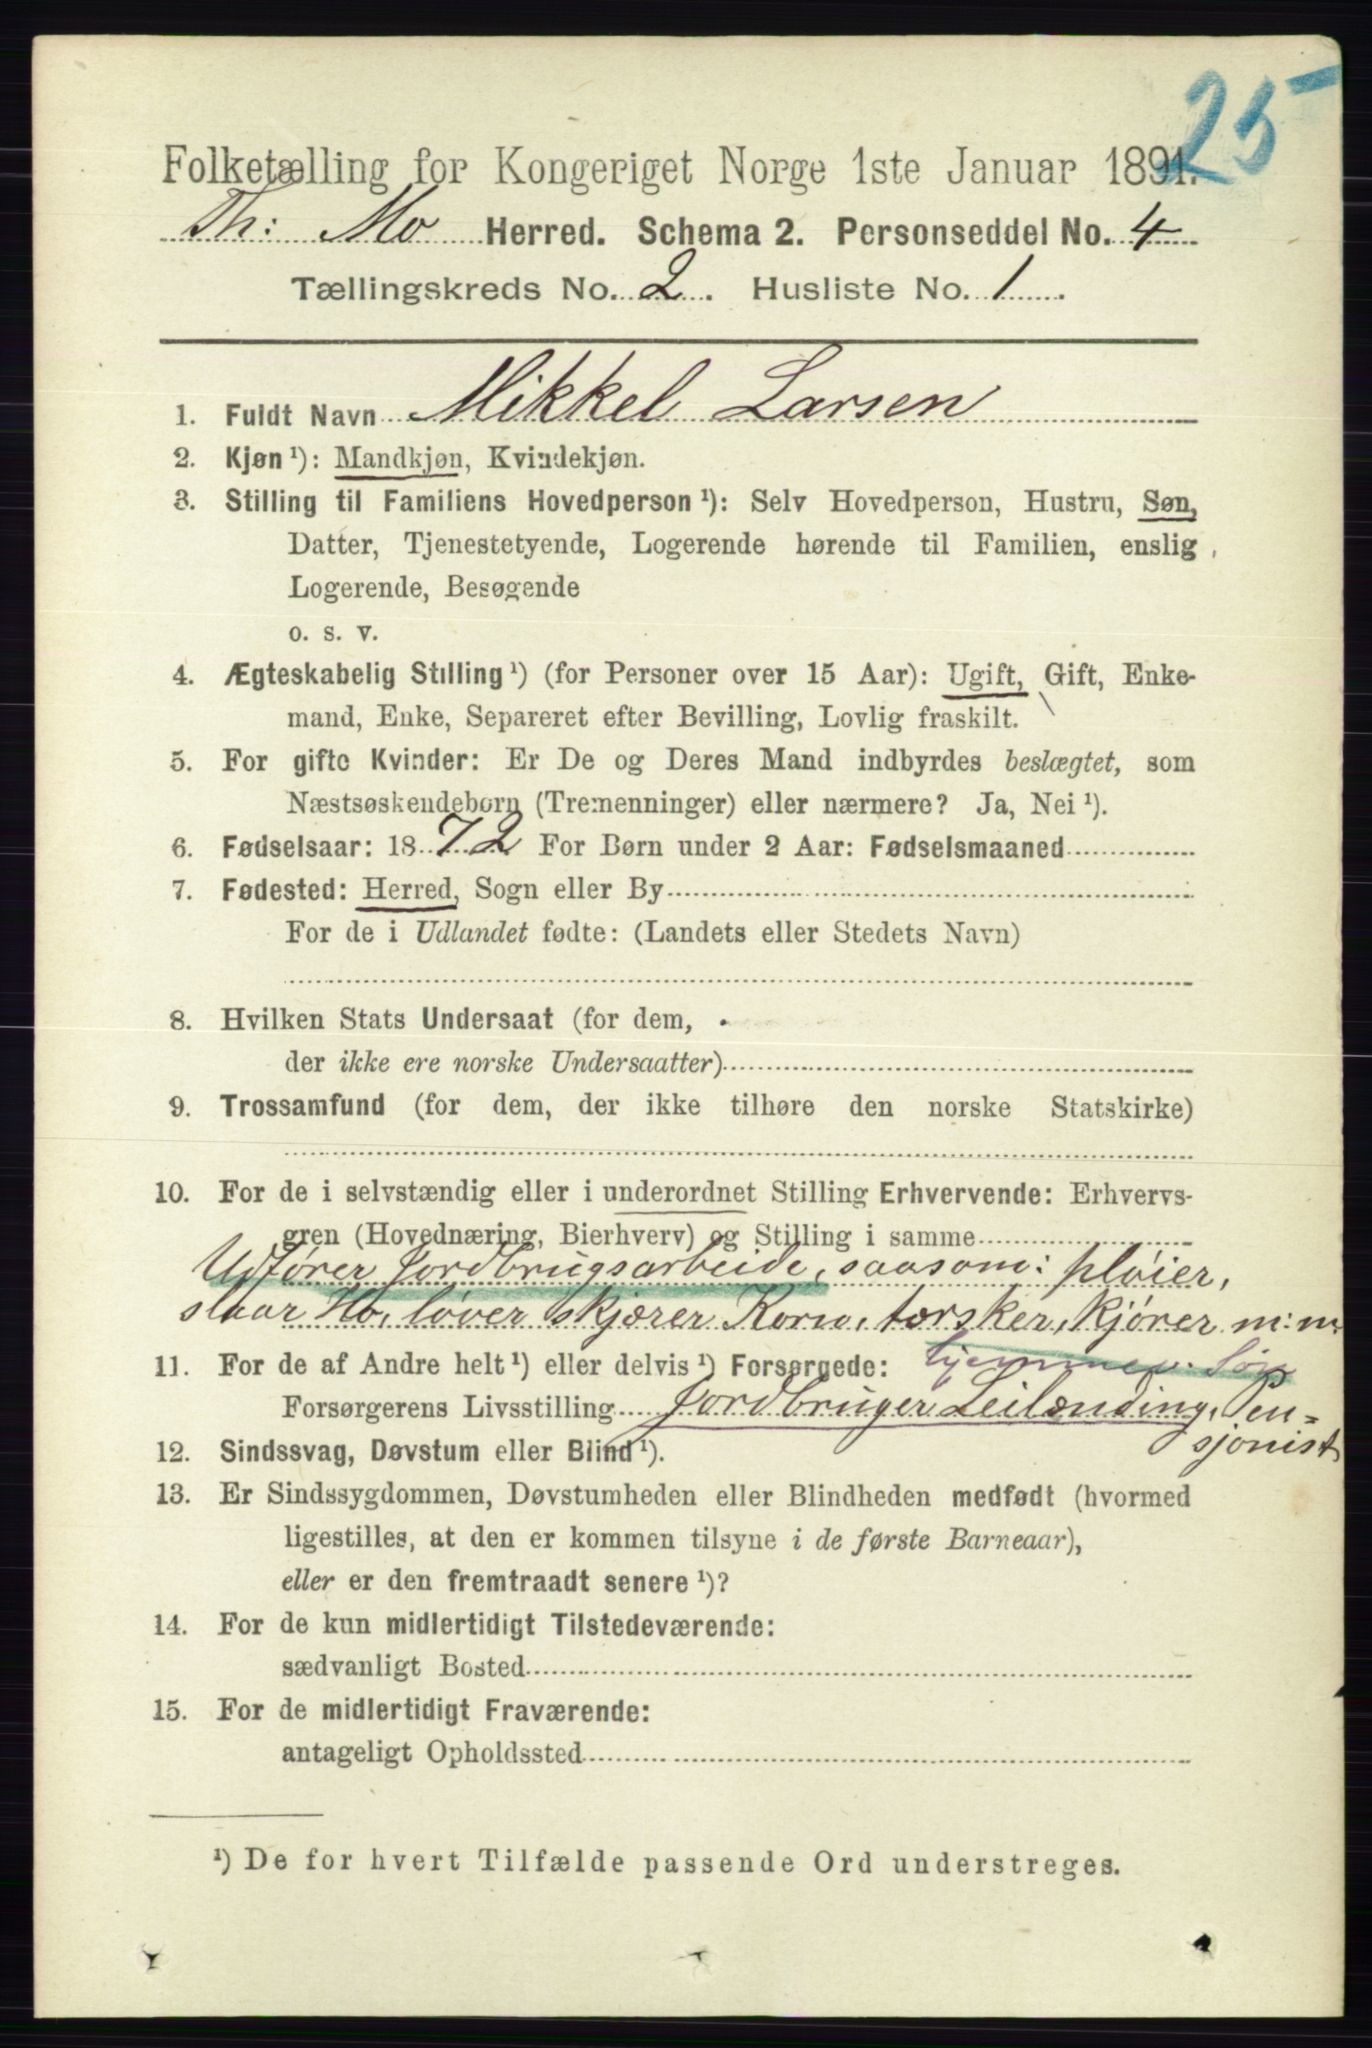 25
Folketælling for Kongeriget Norge 1ste Januar 1891.
Th: Mo Herred. Schema 2. Personseddel No. 4
Tællingskreds No. 2. Husliste No. 1.
1. Fuldt Navn Mikkel Larsen
2. Kjøn ¹): Mandkjøn, Kvindekjøn.
3. Stilling til Familiens Hovedperson ¹): Selv Hovedperson, Hustru, Søn,
Datter, Tjenestetyende, Logerende hørende til Familien, enslig
Logerende, Besøgende
o. s. v.
4. Ægteskabelig Stilling ¹) (for Personer over 15 Aar): Ugift, Gift, Enke-
mand, Enke, Separeret efter Bevilling, Lovlig fraskilt.
5. For gifte Kvinder: Er De og Deres Mand indbyrdes beslægtet, som
Næstsøskendeborn (Tremenninger) eller nærmere? Ja, Nei ¹).
6. Fødselsaar: 1872 For Børn under 2 Aar: Fødselsmaaned
7. Fødested: Herred, Sogn eller By
For de i Udlandet fødte: (Landets eller Stedets Navn)
8. Hvilken Stats Undersaat (for dem,
der ikke ere norske Undersaatter)
9. Trossamfund (for dem, der ikke tilhøre den norske Statskirke)
10. For de i selvstændig eller i underordnet Stilling Erhvervende: Erhvervs-
gren (Hovednæring, Bierhverv) og Stilling i samme
Udfører Jordbrugsarbeide, saasom: pløier,
slaar Ho, løver skjærer Korn, tærsker, kjører m:m:
11. For de af Andre helt ¹) eller delvis ¹) Forsørgede: hjemmev. Søn
Forsørgerens Livsstilling Jordbruger Leilænding, Pen=
sjonist
12. Sindssvag, Døvstum eller Blind ¹).
13. Er Sindssygdommen, Døvstumheden eller Blindheden medfødt (hvormed
ligestilles, at den er kommen tilsyne i de første Barneaar),
eller er den fremtraadt senere ¹)?
14. For de kun midlertidigt Tilstedeværende:
sædvanligt Bosted
15. For de midlertidigt Fraværende:
antageligt Opholdssted
¹) De for hvert Tilfælde passende Ord understreges.